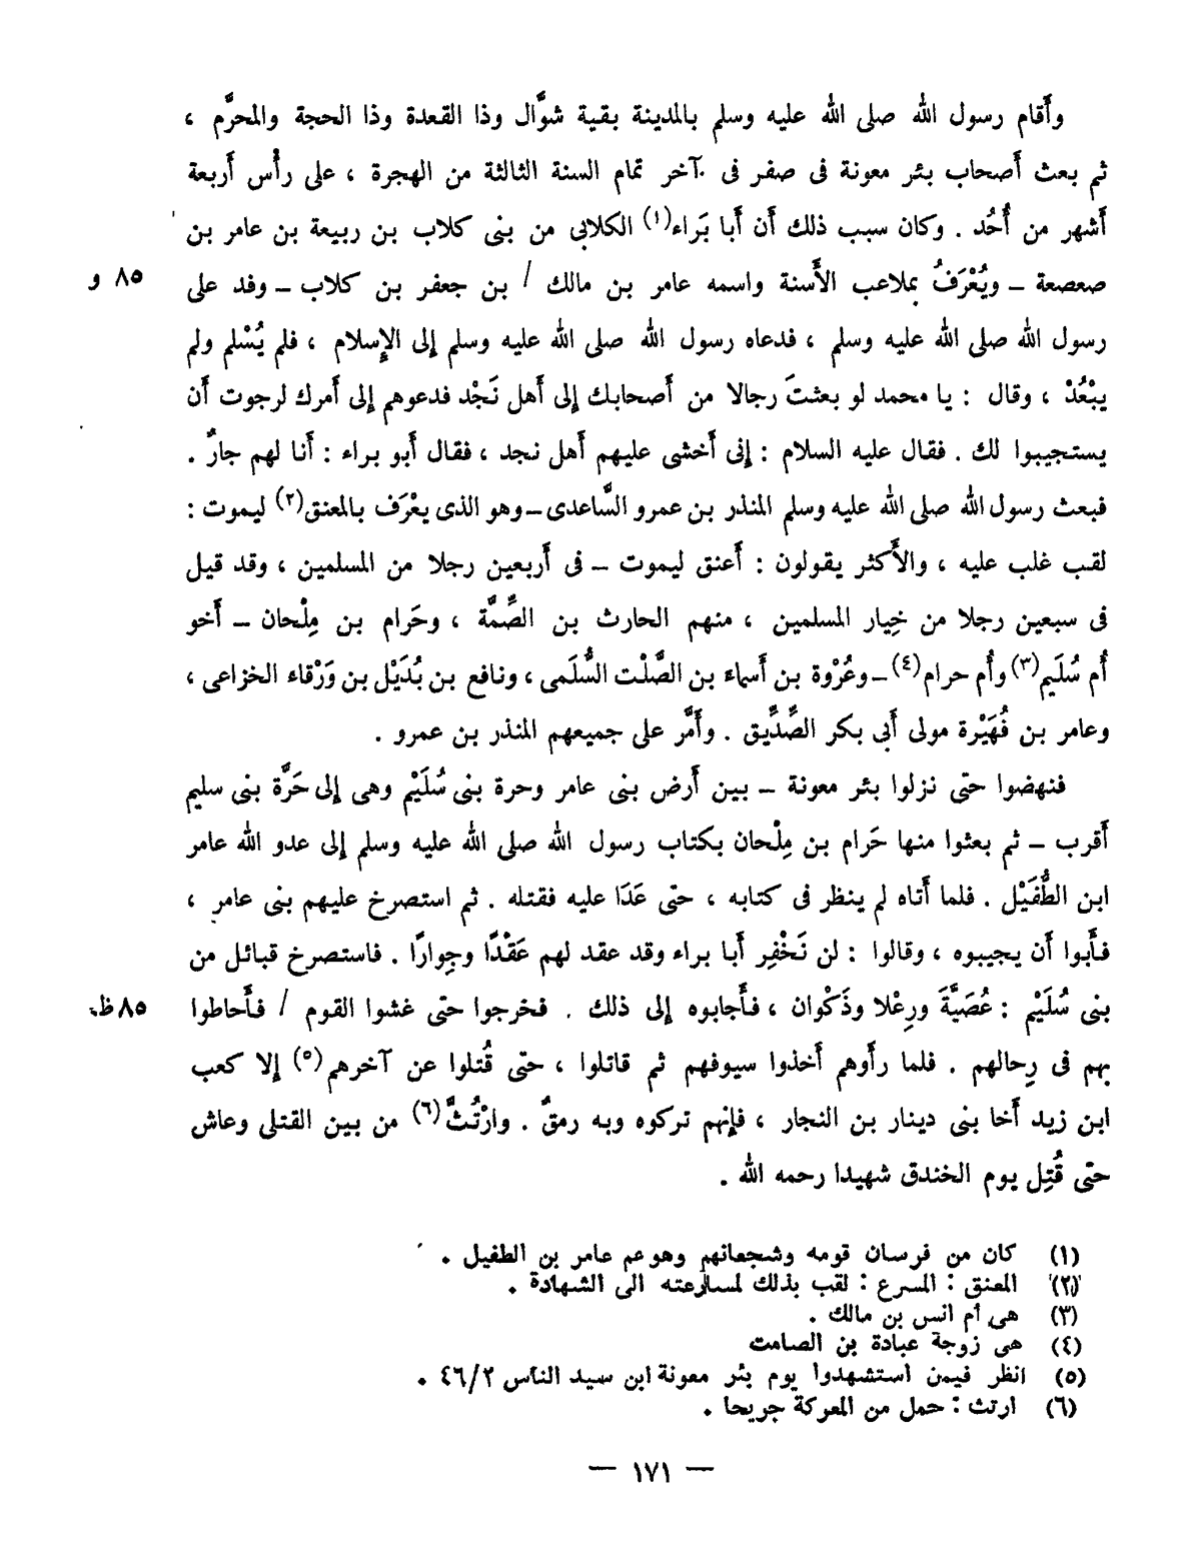 وأَقام رسول الله صلى الله عليه وسلم بالمدينة بقية شوَّال وذا القعدة وذا الحجة والمحرَّم ،
ثم بعث أَصحاب بئر معونة فى صفر فى آخر تمام السنة الثالثة من الهجرة ، على رأْس أَربعة
أَشهر من أُحُد . وكان سبب ذلك أَن أَبا بَراء(١) الكلابى من بنى كلاب بن ربيعة بن عامر بن
صعصعة – ويُعْرَفُ بملاعب الأَسنة واسمه عامر بن مالك / بن جعفر بن كلاب – وفد على
٨٥ و
رسول الله صلى الله عليه وسلم ، فدعاه رسول الله صلى الله عليه وسلم إلى الإسلام ، فلم يُسْلم ولم
يبْعُدْ ، وقال : يا محمد لو بعثتَ رجالا من أَصحابك إلى أَهل نَجْد فدعوهم إلى أَمرك لرجوت أَن
يستجيبوا لك . فقال عليه السلام : إنى أَخشى عليهم أَهل نجد ، فقال أَبو براء : أَنا لهم جارٌ .
فبعث رسول الله صلى الله عليه وسلم المنذر بن عمرو السَّاعدى – وهو الذى يعْرَف بالمعنق(٢) ليموت :
لقب غلب عليه ، والأَكثر يقولون : أَعنق ليموت – فى أَربعين رجلا من المسلمين ، وقد قيل
فى سبعين رجلا من خِيار المسلمين ، منهم الحارث بن الصِّمَّة ، وحَرام بن مِلْحان – أَخو
أُم سُلَيم(٣) وأُم حرام(٤) – وعُرْوة بن أَسماء بن الصَّلْت السُّلَمى ، ونافع بن بُدَيْل بن وَرْقاء الخزاعى ،
وعامر بن فُهَيْرة مولى أَبى بكر الصِّدِّيق . وأَمَّر على جميعهم المنذر بن عمرو .
فنهضوا حتى نزلوا بئر معونة – بين أَرض بنى عامر وحرة بنى سُلَيْم وهى إلى حَرَّة بنى سليم
أَقرب – ثم بعثوا منها حَرام بن مِلْحان بكتاب رسول الله صلى الله عليه وسلم إلى عدو الله عامر
ابن الطُّفَيْل . فلما أَتاه لم ينظر فى كتابه ، حتى عَدَا عليه فقتله . ثم استصرخ عليهم بنى عامر ،
فأَبوا أَن يجيبوه ، وقالوا : لن نَخْفِر أَبا براء وقد عقد لهم عَقْدًا وجِوارًا . فاستصرخ قبائل من
بنى سُلَيْم : عُصَيَّةَ ورِعْلا وذَكْوان ، فأَجابوه إلى ذلك . فخرجوا حتى غشوا القوم / فأَحاطوا
٨٥ ظ
بهم فى رِحالهم . فلما رأَوهم أَخذوا سيوفهم ثم قاتلوا ، حتى قُتلوا عن آخرهم(٥) إلا كعب
ابن زيد أَخا بنى دينار بن النجار ، فإنهم تركوه وبه رمقٌ . وارْتُثَّ(٦) من بين القتلى وعاش
حتى قُتِل يوم الخندق شهيدا رحمه الله .
(١) كان من فرسان قومه وشجعانهم وهو عم عامر بن الطفيل .
(٢) المعنق : المسرع : لقب بذلك لمسارعته الى الشهادة .
(٣) هى أم انس بن مالك .
(٤) هى زوجة عبادة بن الصامت
(٥) انظر فيمن استشهدوا يوم بئر معونة ابن سيد الناس ٤٦/٢ .
(٦) ارتث : حمل من المعركة جريحا .
— ١٧١ —